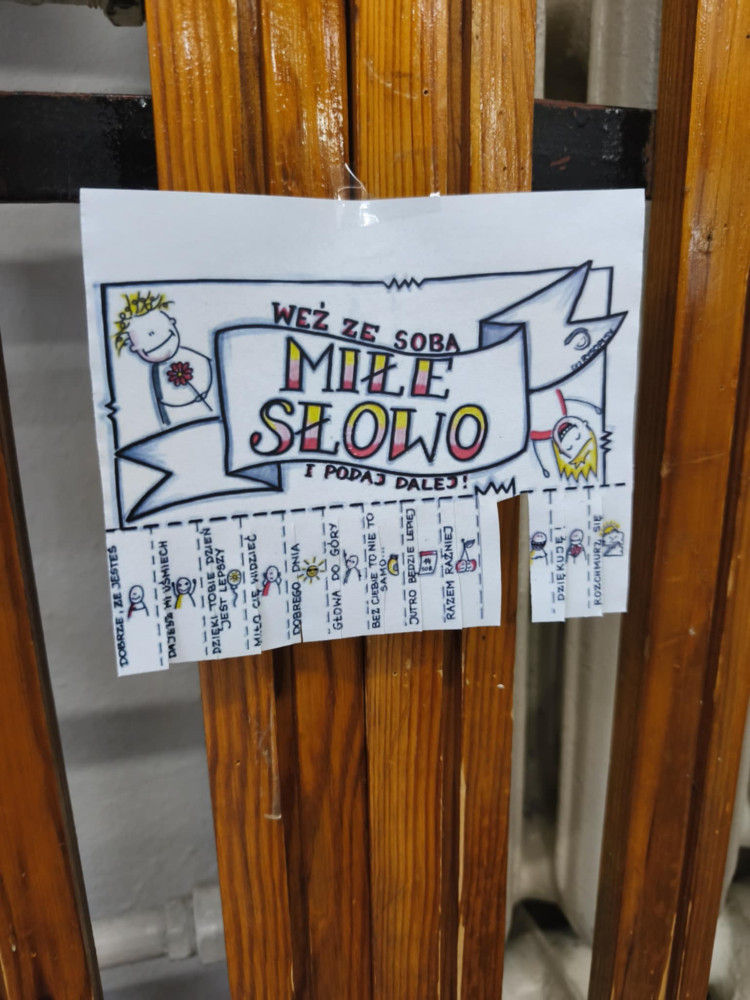 WEŹ ZE SOBĄ
MIŁE
SŁOWO
I PODAJ DALEJ!
DOBRZE, ŻE JESTEŚ
DAJESZ MI UŚMIECH
DZIĘKI TOBIE DZIEŃ
JEST LEPSZY
MIŁO CIĘ WIDZIEĆ
DOBREGO DNIA
GŁOWA DO GÓRY
BEZ CIEBIE TO NIE TO
SAMO...
JUTRO BĘDZIE LEPIEJ
RAZEM RAŹNIEJ
DZIĘKUJĘ!
ROZCHMURZ SIĘ